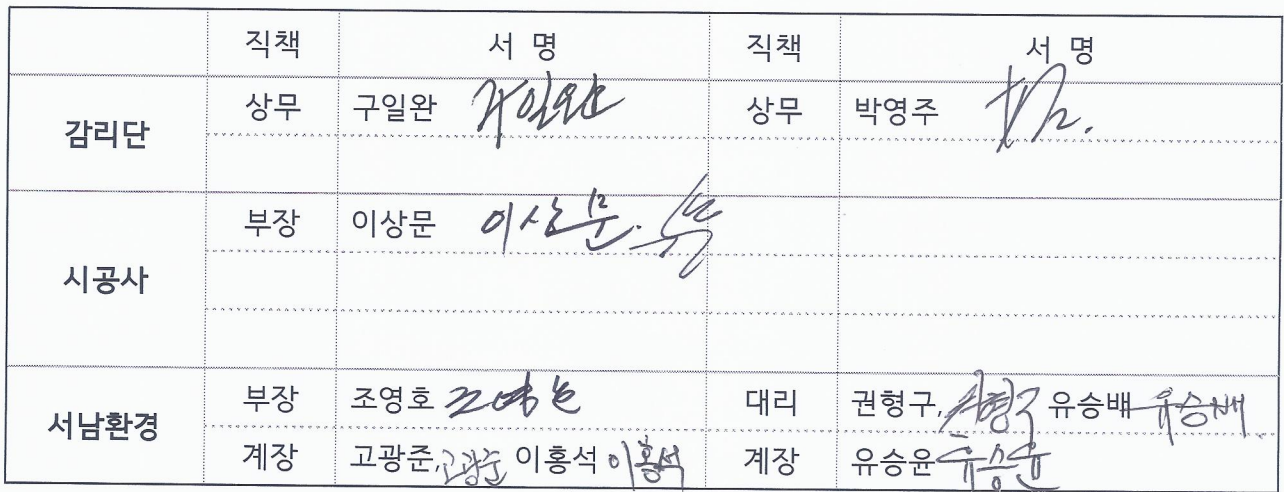 직책 서 명 직책 서 명
감리단 상무 구일완 구일완 상무 박영주
시공사 부장 이상문 이상문.
서남환경 부장 조영호 조영호 대리 권형구, 권형구 유승배 유승배
계장 고광준, 고광준 이홍석 이홍석 계장 유승윤 유승윤